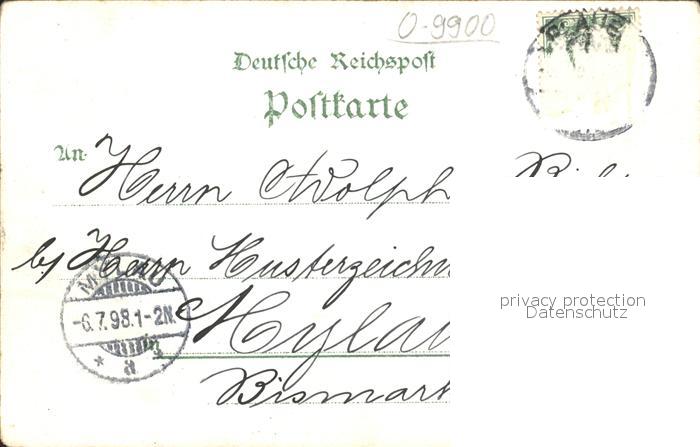 O-9900
Deutsche Reichspost
Postkarte
An
Herrn Adolph
b/ Herrn Husterzeichn
Mylau
in
Bismark
-6.7.98.1-2N.
* a *
privacy protection
Datenschutz